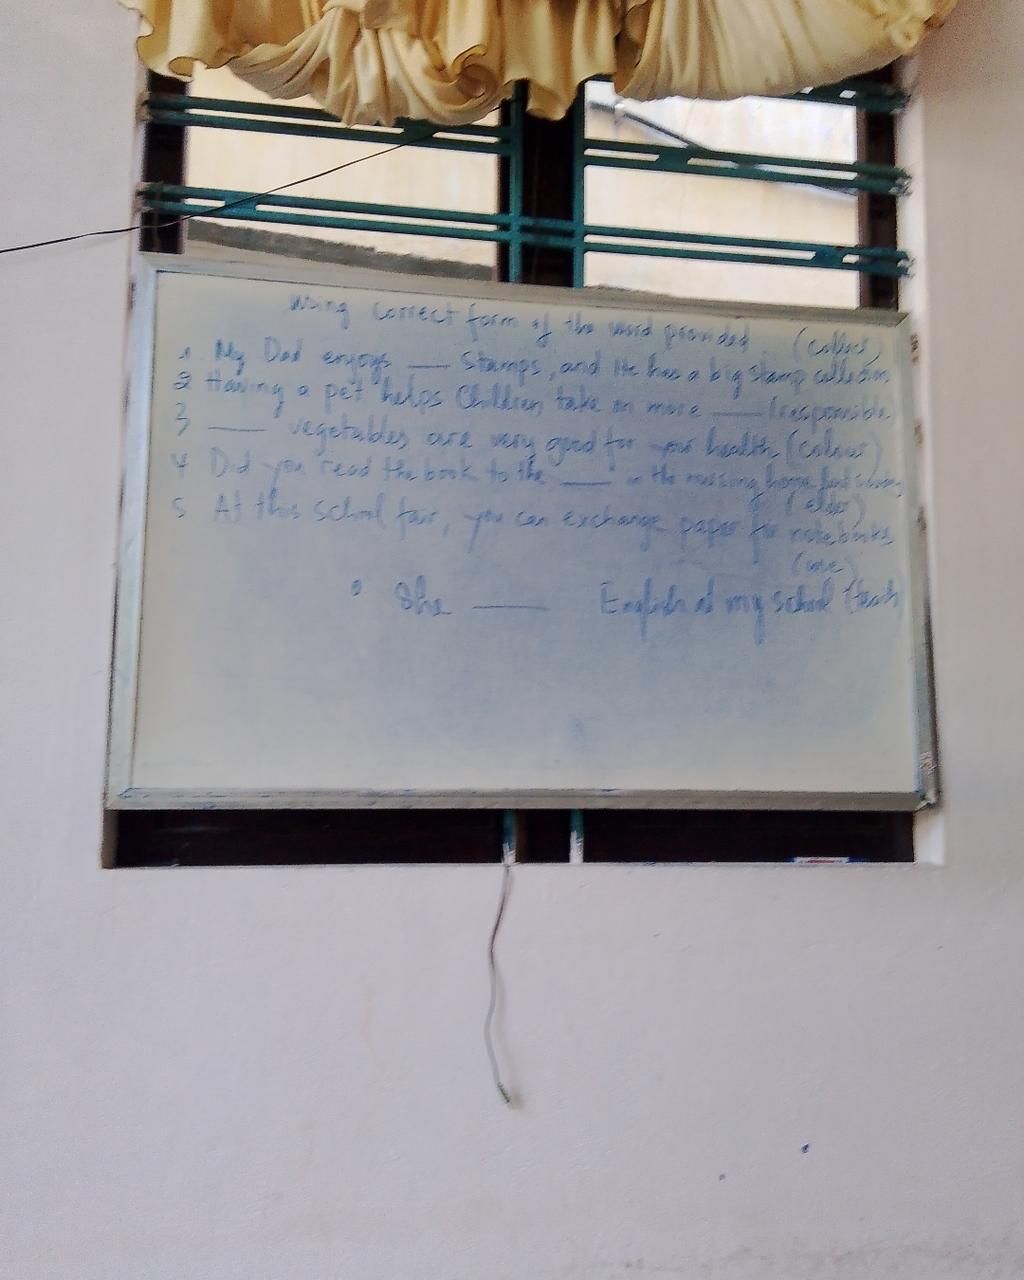 using correct form of the word provided
(collect)
1 My Dad enjoys ___ stamps, and He has a big stamp collection
2 Having a pet helps Children take on more ___ (responsible
3 ___ vegetables are very good for your health (colour)
4 Did you read the book to the ___ in the nursing home last
(elder)
5 At this school fair, you can exchange paper for notebooks
(use)
She ___ English at my school (teach